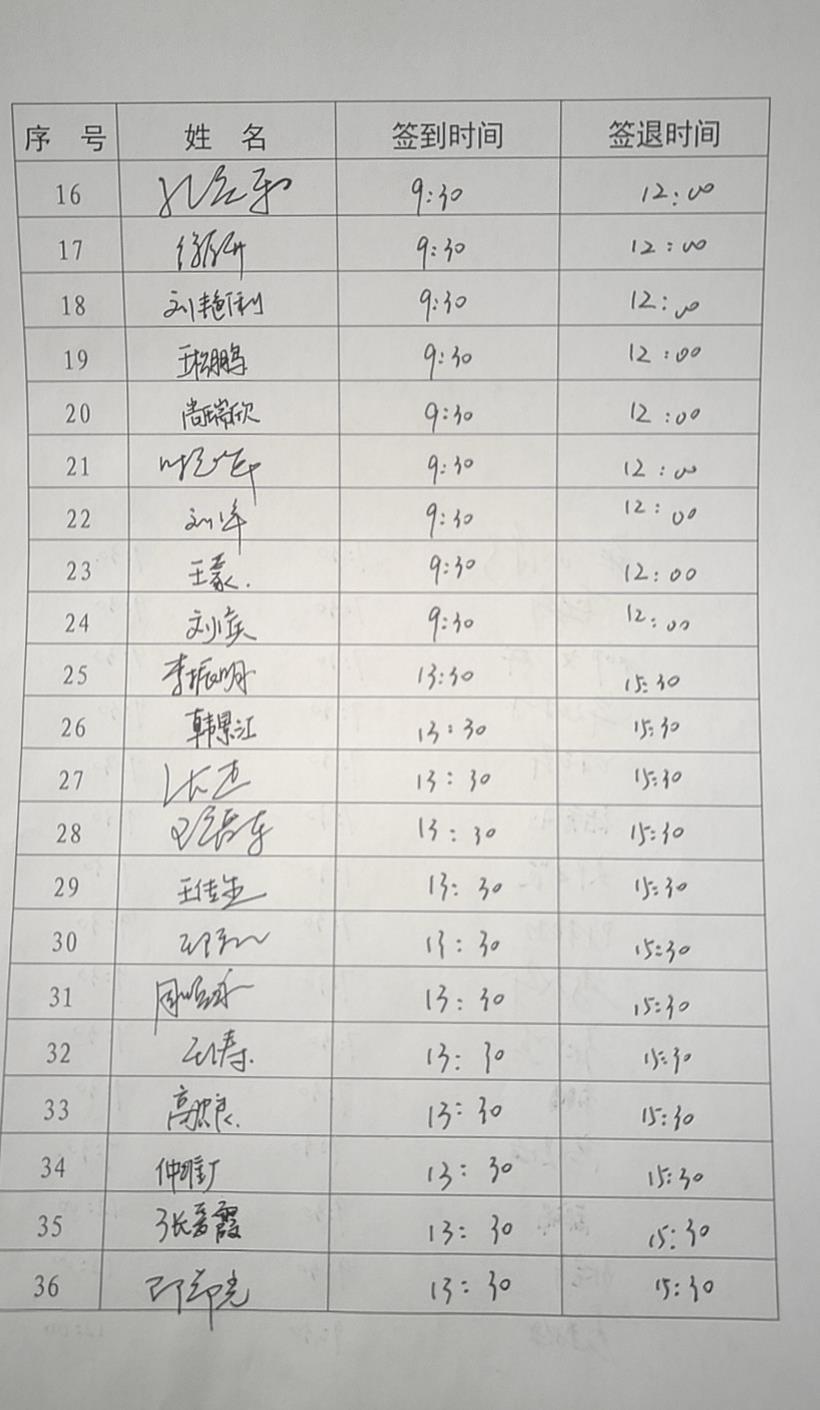 序 号 姓 名 签到时间 签退时间
16 9:30 12:00
17 9:30 12:00
18 刘艳利 9:30 12:00
19 王松鹏 9:30 12:00
20 尚瑞欣 9:30 12:00
21 9:30 12:00
22 刘军 9:30 12:00
23 王豪. 9:30 12:00
24 刘 9:30 12:00
25 李振明 13:30 15:30
26 韩景江 13:30 15:30
27 张杰 13:30 15:30
28 13:30 15:30
29 王佳生 13:30 15:30
30 13:30 15:30
31 周 13:30 15:30
32 王涛. 13:30 15:30
33 高忠良. 13:30 15:30
34 仲维广 13:30 15:30
35 张爱霞 13:30 15:30
36 13:30 15:30